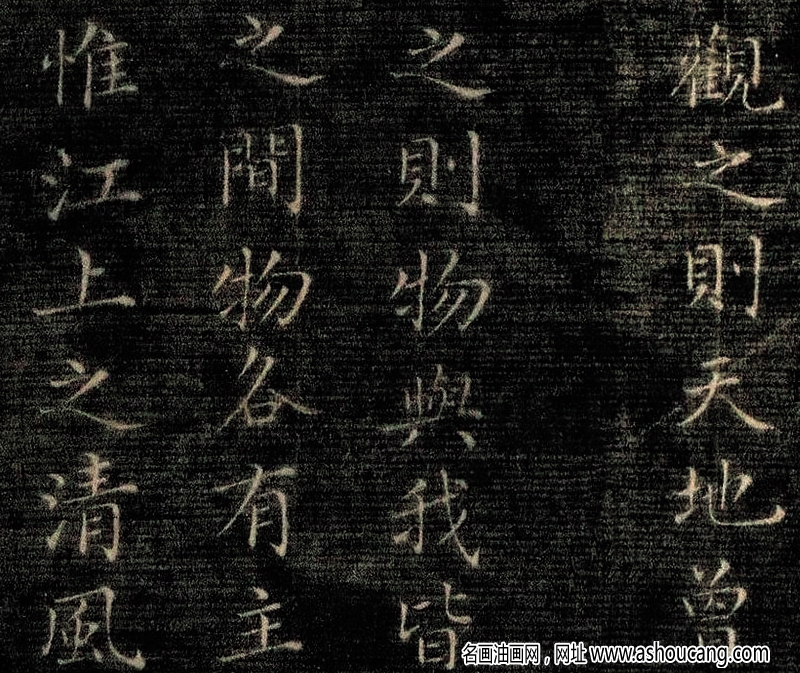 觀之則天地曾
之則物與我皆
之間物各有主
惟江上之清風
名画油画网，网址 www.ashoucang.com